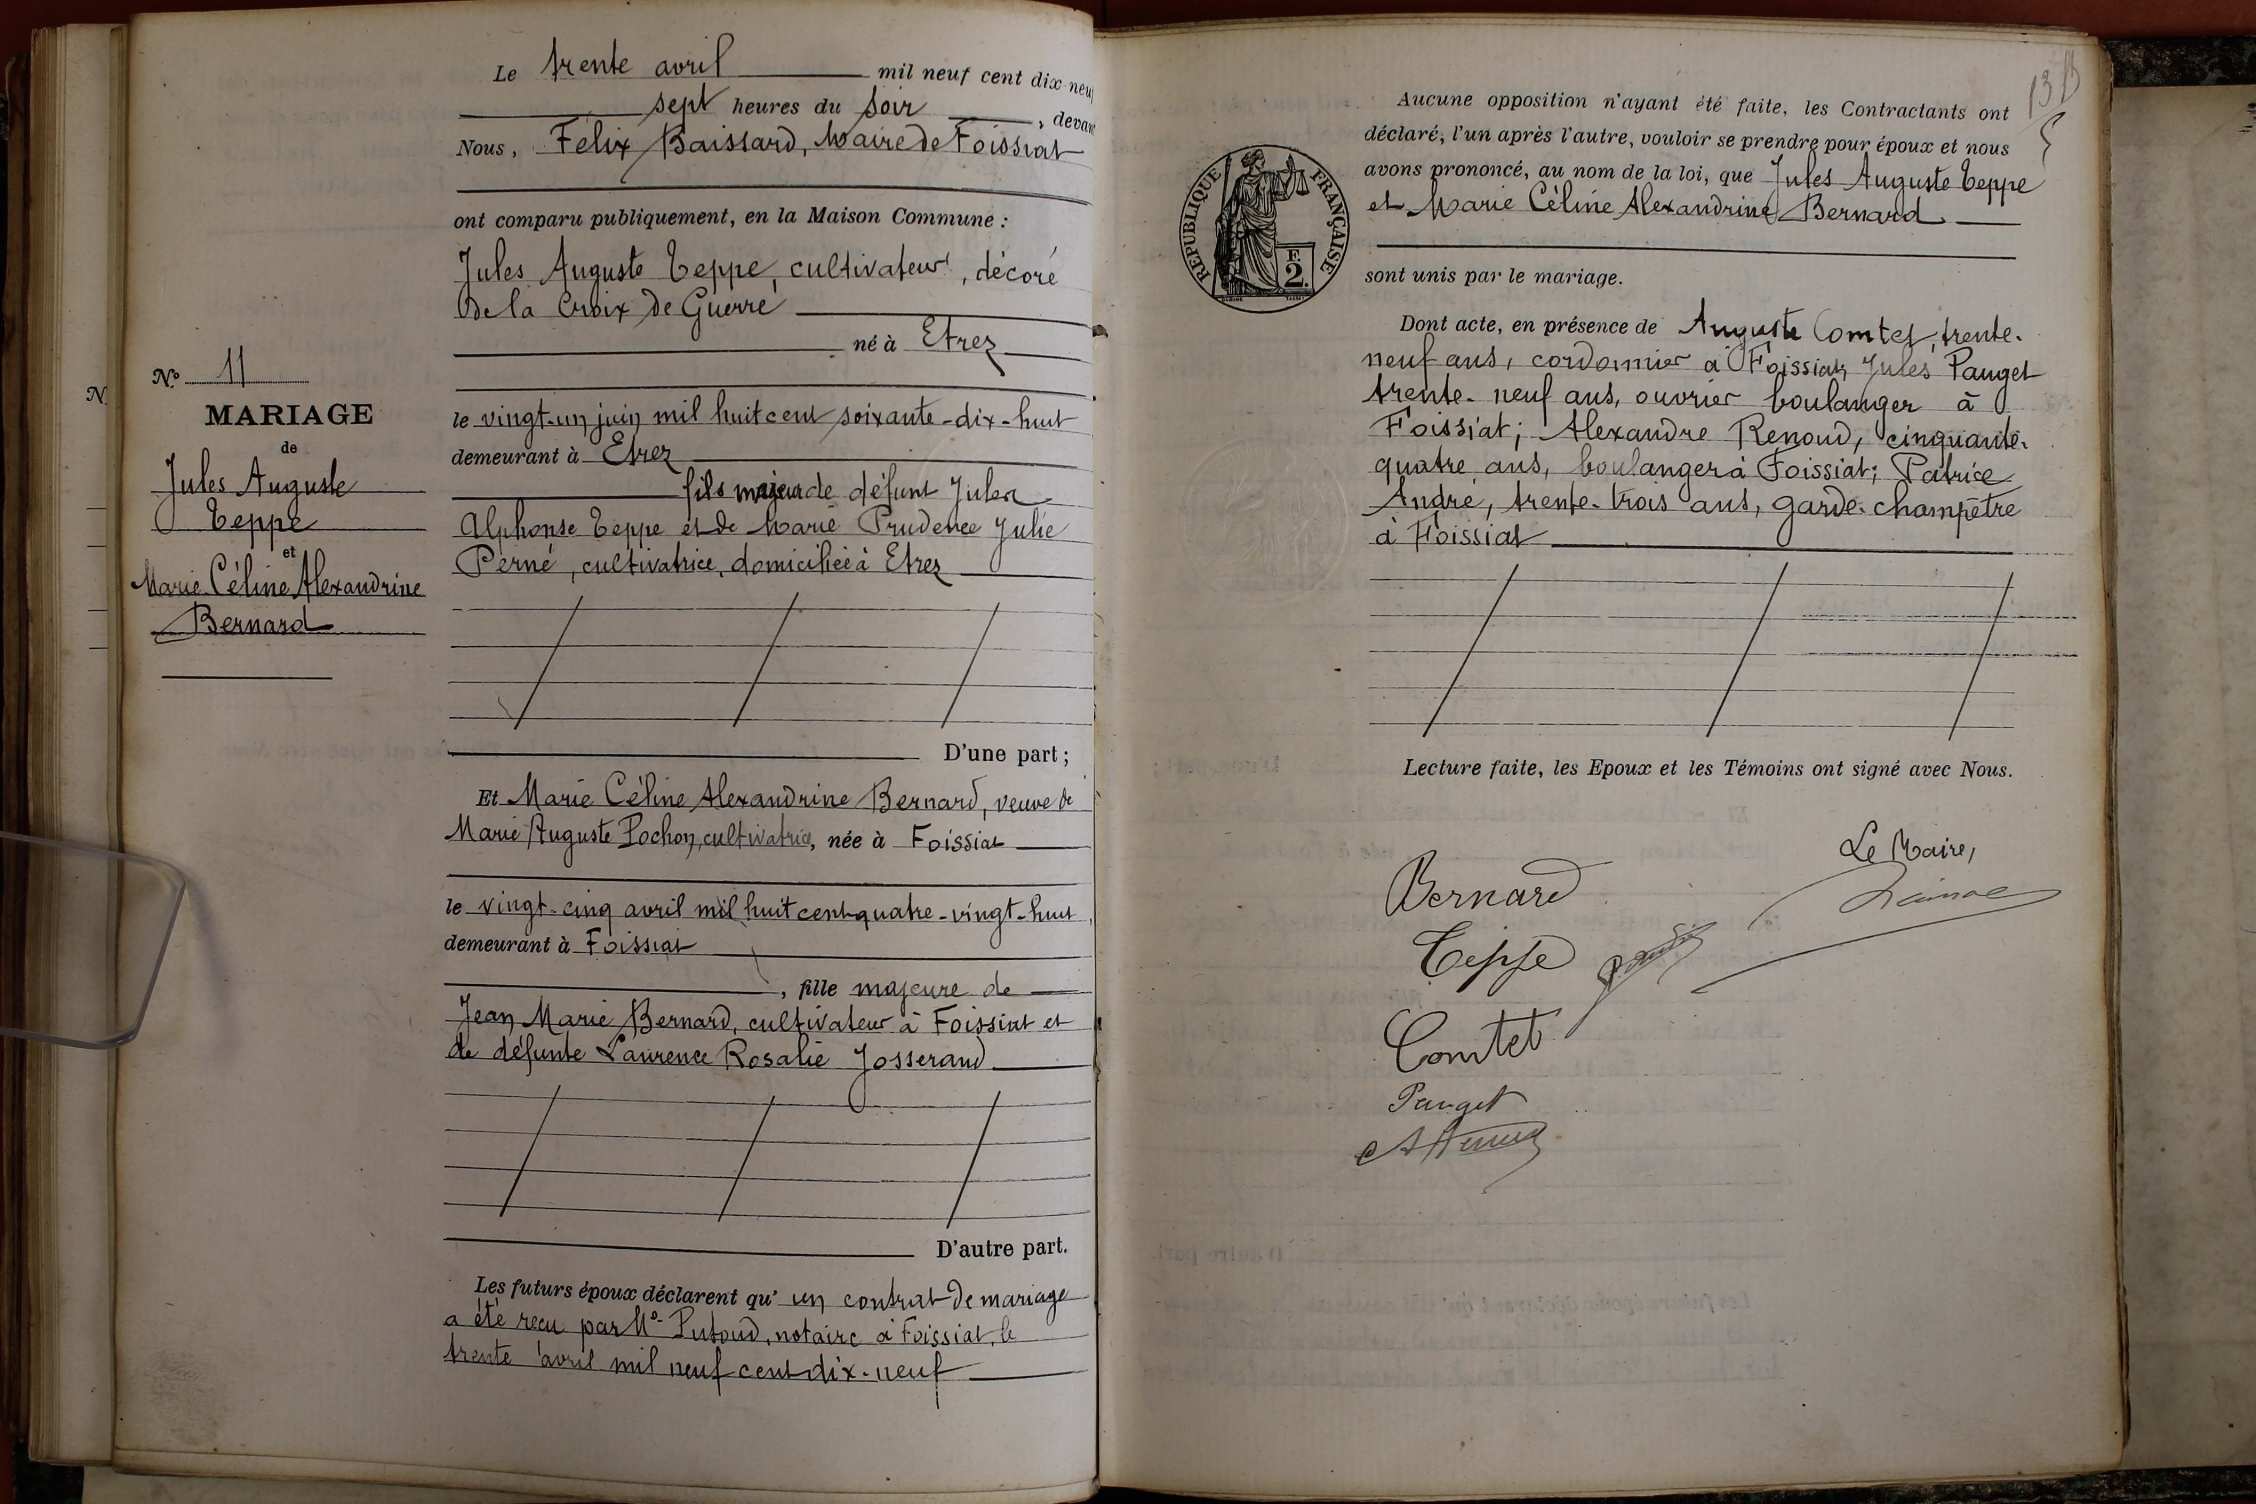 Le trente avril mil neuf cent dix-neuf
sept heures du soir, devant
Nous, Félix Baissard, Maire de Foissiat
ont comparu publiquement, en la Maison Commune :
Jules Auguste Teppe, cultivateur, décoré
de la Croix de Guerre
né à Etrez
N° 11
MARIAGE
de
Jules Auguste
Teppe
et
Marie Céline Alexandrine
Bernard
le vingt-un juin mil huit cent soixante-dix-huit
demeurant à Etrez
fils majeur de défunt Jules
Alphonse Teppe et de Marie Prudence Julie
Perné, cultivatrice, domiciliée à Etrez
D'une part ;
Et Marie Céline Alexandrine Bernard, veuve de
Marie Auguste Pochon, cultivatrice, née à Foissiat
le vingt-cinq avril mil huit cent quatre-vingt-huit,
demeurant à Foissiat
, fille majeure de
Jean Marie Bernard, cultivateur à Foissiat et
de défunte Laurence Rosalie Josserand
D'autre part.
Les futurs époux déclarent qu' un contrat de mariage
a été reçu par Me Putoud, notaire à Foissiat, le
trente avril mil neuf cent dix-neuf
13
Aucune opposition n'ayant été faite, les Contractants ont
déclaré, l'un après l'autre, vouloir se prendre pour époux et nous
avons prononcé, au nom de la loi, que Jules Auguste Teppe
et Marie Céline Alexandrine Bernard
sont unis par le mariage.
RÉPUBLIQUE FRANÇAISE
F
2.
Dont acte, en présence de Auguste Comtet, trente-
neuf ans, cordonnier à Foissiat, Jules Pauget
trente-neuf ans, ouvrier boulanger à
Foissiat ; Alexandre Renoud, cinquante-
quatre ans, boulanger à Foissiat ; Patrice
André, trente-trois ans, garde-champêtre
à Foissiat
Lecture faite, les Epoux et les Témoins ont signé avec Nous.
Le Maire,
Bernard
Teppe
Comtet
Pauget